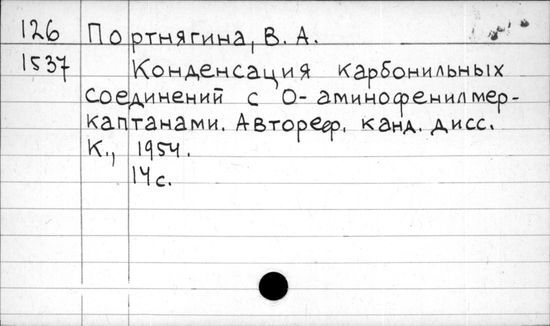 126 Портнягина, В. А.
1537 Конденсация карбонильных
соединений с О- аминофенилмер-
каптанами. Автореф. канд. дисс.
К., 1954.
14 с.